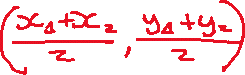 (x₁+x₂/2, y₁+y₂/2)